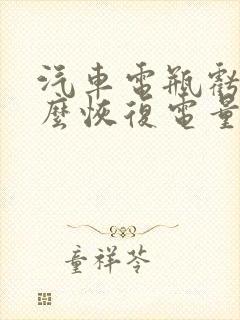 汽車電瓶虧
麼恢復電量
童祥苓